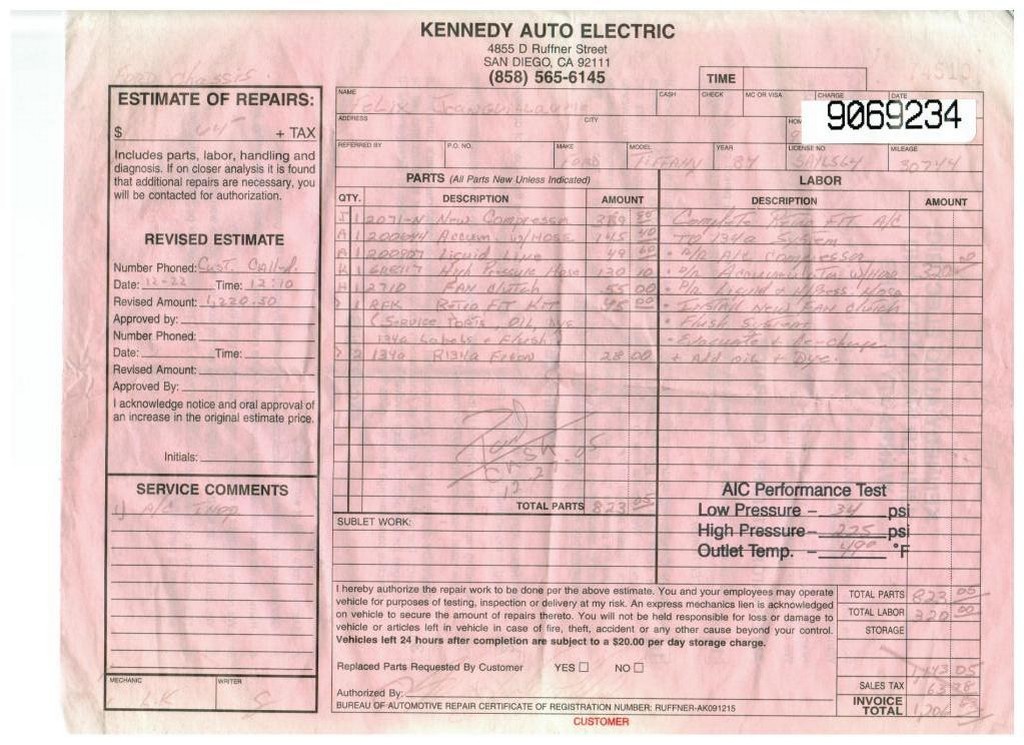 KENNEDY AUTO ELECTRIC
4855 D Ruffner Street
SAN DIEGO, CA 92111
(858) 565-6145
FORD Chassis
TIME
ESTIMATE OF REPAIRS:
$ + TAX
Includes parts, labor, handling and
diagnosis. If on closer analysis it is found
that additional repairs are necessary, you
will be contacted for authorization.
REVISED ESTIMATE
Number Phoned: Cust. Called.
Date: 12-22 Time: 12:10
Revised Amount: 1,220.50
Approved by:
Number Phoned:
Date: Time:
Revised Amount:
Approved By:
I acknowledge notice and oral approval of
an increase in the original estimate price.
Initials:
SERVICE COMMENTS
1) A/C Inop
MECHANIC WRITER
L.K
NAME CASH CHECK MC OR VISA CHARGE DATE
Felix
9069234
ADDRESS CITY
REFERRED BY P.O. NO. MAKE MODEL YEAR LICENSE NO. MILEAGE
FORD TIFFANY 84 30744
PARTS (All Parts New Unless Indicated) LABOR
QTY. DESCRIPTION AMOUNT DESCRIPTION AMOUNT
1 2071-N New Compressor Complete Retro FIT A/C
1 200044 Accum w/Hose 145 40 TO 134a System
Liquid Line 49 • R/R A/C Compressor
High Pressure Hose 120 10 • R/R Accumulator w/Hose 320 00
1 2710 FAN Clutch 55 00 • R/R Liquid + H/Press Hose
1 RFK Retro FIT KIT 45 00 • Install New FAN Clutch
(Service Ports, Oil, Dye • Flush System
134a Labels + Flush) • Evacuate + Re-charge
2 134a R134a Freon 28 00 + Add oil + Dye.
Pd
Cash
12
TOTAL PARTS 823 05
SUBLET WORK:
A\C Performance Test
Low Pressure - 34 psi
High Pressure - 225 psi
Outlet Temp. - 49° °F
I hereby authorize the repair work to be done per the above estimate. You and your employees may operate
vehicle for purposes of testing, inspection or delivery at my risk. An express mechanics lien is acknowledged
on vehicle to secure the amount of repairs thereto. You will not be held responsible for loss or damage to
vehicle or articles left in vehicle in case of fire, theft, accident or any other cause beyond your control.
Vehicles left 24 hours after completion are subject to a $20.00 per day storage charge.
Replaced Parts Requested By Customer YES ☐ NO ☐
Authorized By:
BUREAU OF AUTOMOTIVE REPAIR CERTIFICATE OF REGISTRATION NUMBER: RUFFNER-AK091215
CUSTOMER
TOTAL PARTS 823 05
TOTAL LABOR 320 00
STORAGE
1143.05
SALES TAX 63.38
INVOICE TOTAL 1,206